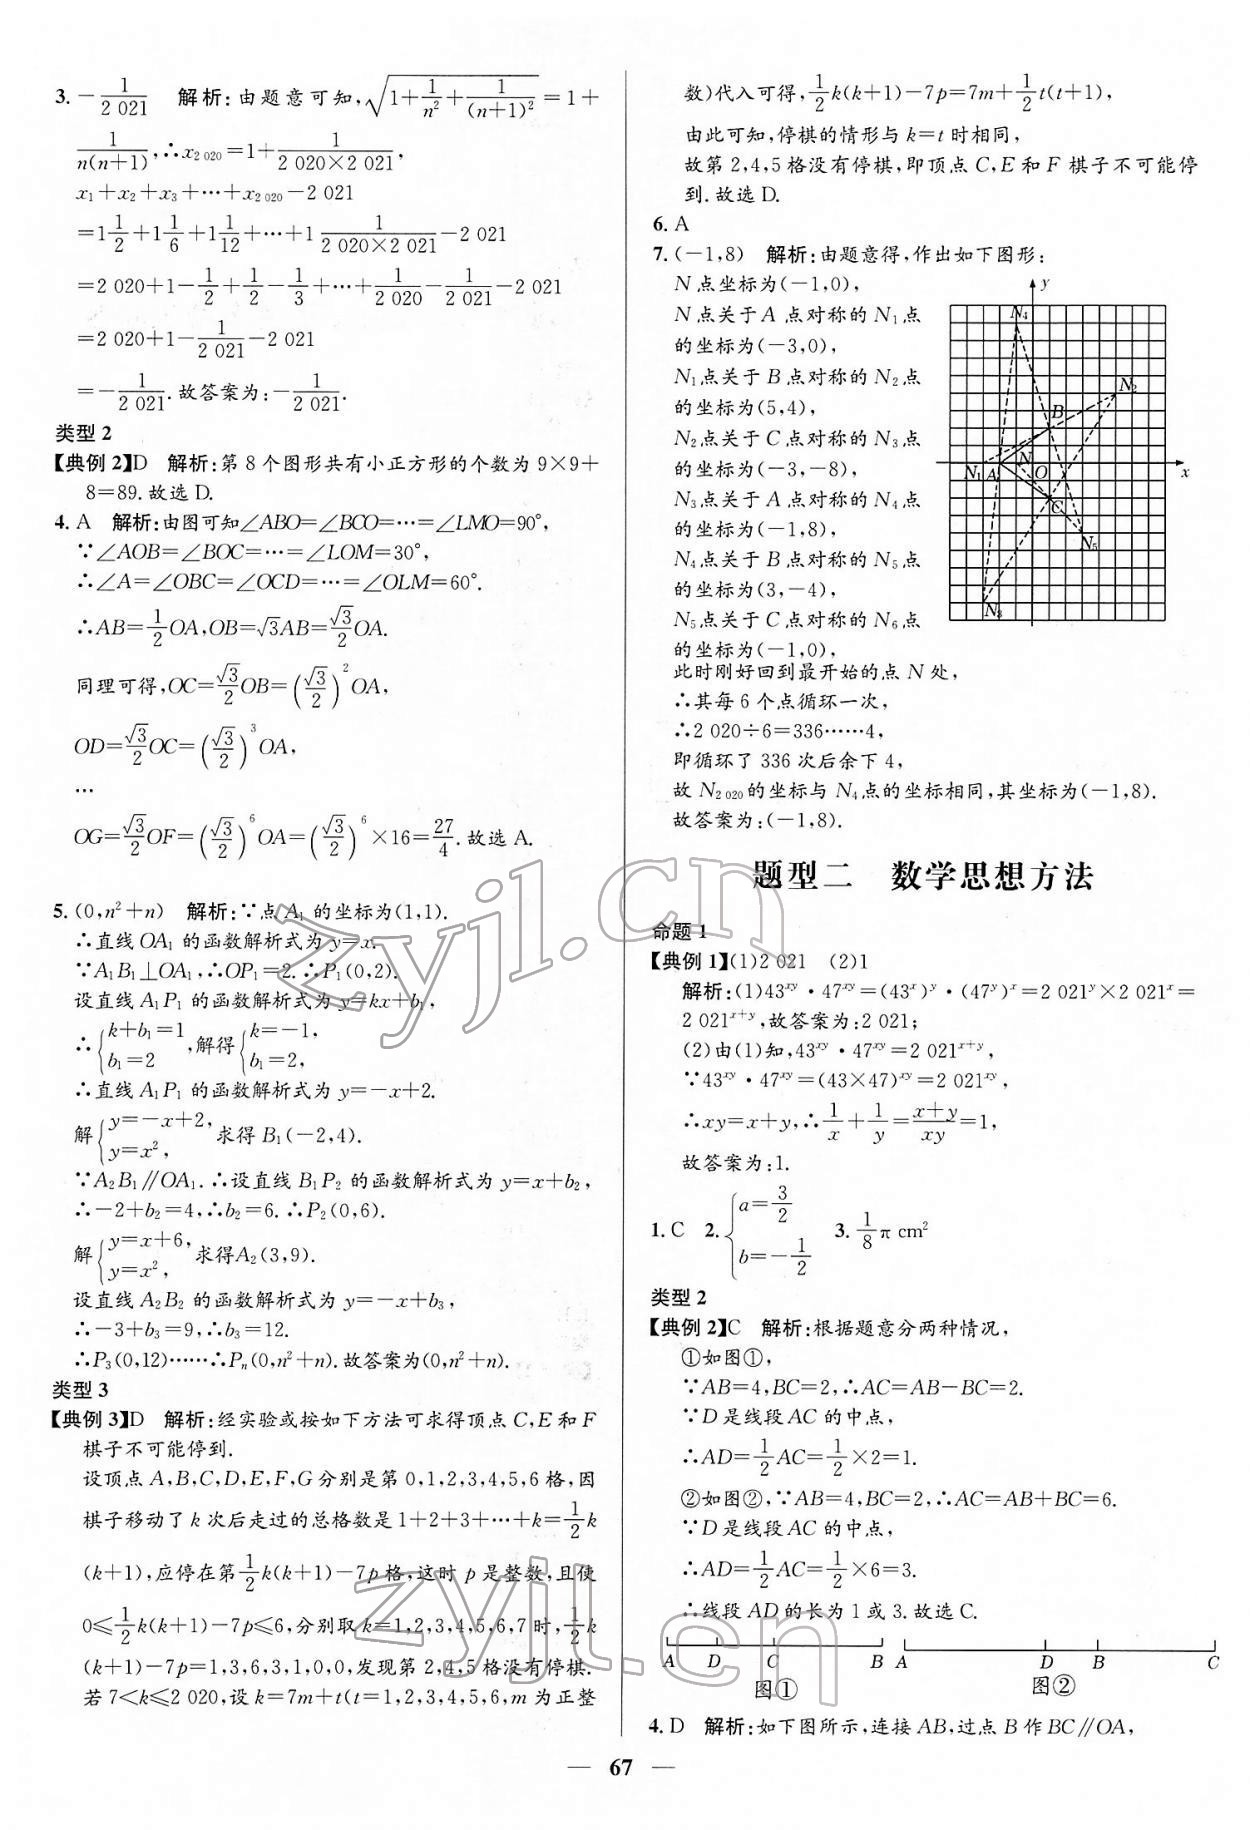 3. －1/2 021　解析:由题意可知,√(1＋1/n²＋1/(n＋1)²)＝1＋
1/n(n＋1),∴x₂ ₀₂₀＝1＋1/2 020×2 021,
x₁＋x₂＋x₃＋…＋x₂ ₀₂₀－2 021
＝1 1/2＋1 1/6＋1 1/12＋…＋1 1/2 020×2 021－2 021
＝2 020＋1－1/2＋1/2－1/3＋…＋1/2 020－1/2 021－2 021
＝2 020＋1－1/2 021－2 021
＝－1/2 021.故答案为:－1/2 021.
类型 2
【典例 2】D　解析:第 8 个图形共有小正方形的个数为 9×9＋
8＝89.故选 D.
4. A　解析:由图可知∠ABO＝∠BCO＝…＝∠LMO＝90°,
∵∠AOB＝∠BOC＝…＝∠LOM＝30°,
∴∠A＝∠OBC＝∠OCD＝…＝∠OLM＝60°.
∴AB＝1/2 OA,OB＝√3AB＝√3/2 OA.
同理可得,OC＝√3/2 OB＝(√3/2)² OA,
OD＝√3/2 OC＝(√3/2)³ OA,
…
OG＝√3/2 OF＝(√3/2)⁶ OA＝(√3/2)⁶×16＝27/4.故选 A.
5. (0,n²＋n)　解析:∵点 A₁ 的坐标为(1,1).
∴直线 OA₁ 的函数解析式为 y＝x.
∵A₁B₁⊥OA₁,∴OP₁＝2.∴P₁(0,2).
设直线 A₁P₁ 的函数解析式为 y＝kx＋b₁,
∴{k＋b₁＝1 b₁＝2,解得{k＝－1, b₁＝2,
∴直线 A₁P₁ 的函数解析式为 y＝－x＋2.
解{y＝－x＋2, y＝x²,求得 B₁(－2,4).
∵A₂B₁∥OA₁.∴设直线 B₁P₂ 的函数解析式为 y＝x＋b₂,
∴－2＋b₂＝4,∴b₂＝6.∴P₂(0,6).
解{y＝x＋6, y＝x²,求得A₂(3,9).
设直线 A₂B₂ 的函数解析式为 y＝－x＋b₃,
∴－3＋b₃＝9,∴b₃＝12.
∴P₃(0,12)……∴Pₙ(0,n²＋n).故答案为(0,n²＋n).
类型 3
【典例 3】D　解析:经实验或按如下方法可求得顶点 C,E 和 F
棋子不可能停到.
设顶点 A,B,C,D,E,F,G 分别是第 0,1,2,3,4,5,6 格,因
棋子移动了 k 次后走过的总格数是 1＋2＋3＋…＋k＝1/2 k
(k＋1),应停在第 1/2 k(k＋1)－7p 格,这时 p 是整数,且使
0≤1/2 k(k＋1)－7p≤6,分别取 k＝1,2,3,4,5,6,7 时,1/2 k
(k＋1)－7p＝1,3,6,3,1,0,0,发现第 2,4,5 格没有停棋.
若 7＜k≤2 020,设 k＝7m＋t(t＝1,2,3,4,5,6,m 为正整
数)代入可得,1/2 k(k＋1)－7p＝7m＋1/2 t(t＋1),
由此可知,停棋的情形与 k＝t 时相同,
故第 2,4,5 格没有停棋,即顶点 C,E 和 F 棋子不可能停
到.故选 D.
6. A
7. (－1,8)　解析:由题意得,作出如下图形:
N 点坐标为(－1,0),
N 点关于 A 点对称的 N₁ 点
的坐标为(－3,0),
N₁ 点关于 B 点对称的 N₂ 点
的坐标为(5,4),
N₂ 点关于 C 点对称的 N₃ 点
的坐标为(－3,－8),
N₃ 点关于 A 点对称的 N₄ 点
的坐标为(－1,8),
N₄ 点关于 B 点对称的 N₅ 点
的坐标为(3,－4),
N₅ 点关于 C 点对称的 N₆ 点
的坐标为(－1,0),
y
N₄
N₂
B
N₁ A N O x
C
N₅
N₃
此时刚好回到最开始的点 N 处,
∴其每 6 个点循环一次,
∴2 020÷6＝336……4,
即循环了 336 次后余下 4,
故 N₂ ₀₂₀ 的坐标与 N₄ 点的坐标相同,其坐标为(－1,8).
故答案为:(－1,8).
题型二　数学思想方法
命题 1
【典例 1】(1)2 021　(2)1
解析:(1)43^xy・47^xy＝(43^x)^y・(47^y)^x＝2 021^y×2 021^x＝
2 021^(x＋y),故答案为:2 021;
(2)由(1)知,43^xy・47^xy＝2 021^(x＋y),
∵43^xy・47^xy＝(43×47)^xy＝2 021^xy,
∴xy＝x＋y,∴1/x＋1/y＝(x＋y)/xy＝1,
故答案为:1.
1. C　2. {a＝3/2 b＝－1/2　3. 1/8 π cm²
类型 2
【典例 2】C　解析:根据题意分两种情况,
①如图①,
∵AB＝4,BC＝2,∴AC＝AB－BC＝2.
∵D 是线段 AC 的中点,
∴AD＝1/2 AC＝1/2×2＝1.
②如图②,∵AB＝4,BC＝2,∴AC＝AB＋BC＝6.
∵D 是线段 AC 的中点,
∴AD＝1/2 AC＝1/2×6＝3.
∴线段 AD 的长为 1 或 3.故选 C.
A D C B　A D B C
图①　图②
4. D　解析:如下图所示,连接 AB,过点 B 作 BC∥OA,
— 67 —
zyjl.cn
zyjl.cn